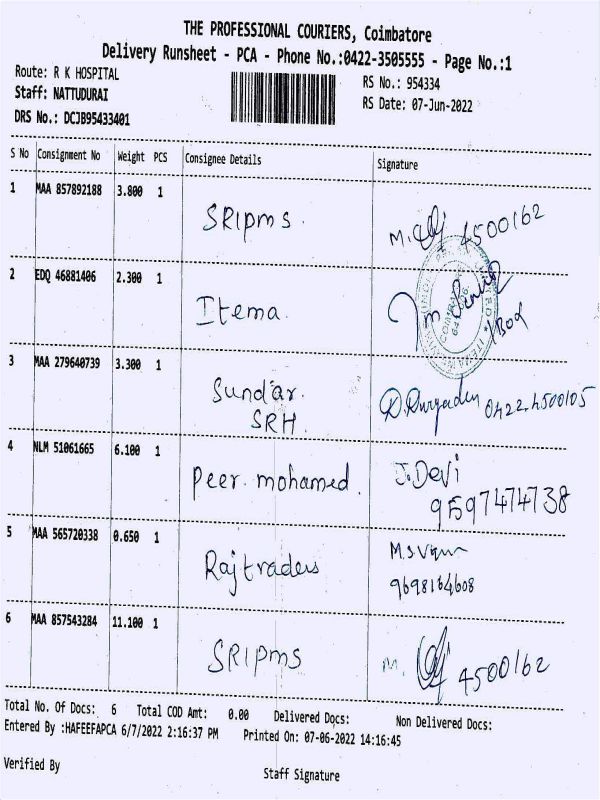 THE PROFESSIONAL COURIERS, Coimbatore
Delivery Runsheet - PCA - Phone No.:0422-3505555 - Page No.:1
Route: R K HOSPITAL
RS No.: 954334
Staff: NATTUDURAI
RS Date: 07-Jun-2022
DRS No.: DCJB95433401
S No Consignment No Weight PCS Consignee Details Signature
1 MAA 857892188 3.800 1 SRIpms. M. 4500162
2 EDQ 46881406 2.300 1 Itema
3 MAA 279640739 3.300 1 Sundar. 0422-4500105
SRH.
4 NLM 51061665 6.100 1 Peer mohamed. J.Devi
9597474738
5 MAA 565720338 0.650 1 Rajtraders
9698164608
6 MAA 857543284 11.100 1 SRIpms M. 4500162
Total No. Of Docs: 6 Total COD Amt: 0.00 Delivered Docs: Non Delivered Docs:
Entered By :HAFEEFAPCA 6/7/2022 2:16:37 PM Printed On: 07-06-2022 14:16:45
Verified By
Staff Signature